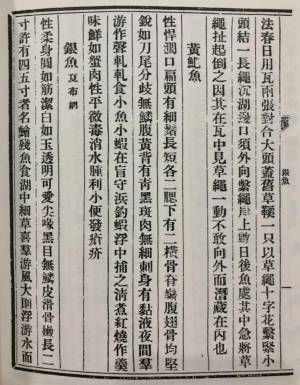 銀魚
法春日用瓦兩張對合大頭蓋舊草鞋一只以草繩十字花繫緊小
頭結一長繩沉湖邊口須外向繫繩岸上數日後魚處其中急將草
繩扯起倒之因其在瓦中見草繩一動不敢向外而潛藏在內也
黃魟魚
性悍濶口扁頭有細鬚長短各二腮下有二橫骨脊鬐腹翅骨均堅
銳如刀尾分歧無鱗腹黃背有青黑斑肉無細刺身有黏液夜間羣
游作聲軋軋食小魚小蝦在盲守浜釣鰕浮中捕之清煮紅燒作羹
味鮮如蟹肉性平微毒消水腫利小便發瘡疥
銀魚 夏布網
性柔身圓如筋潔白如玉透明可愛尖喙黑目無鱗皮滑骨嫩長二
寸許有四五寸者名鱠殘魚食湖中細草喜羣游風大則浮游水面